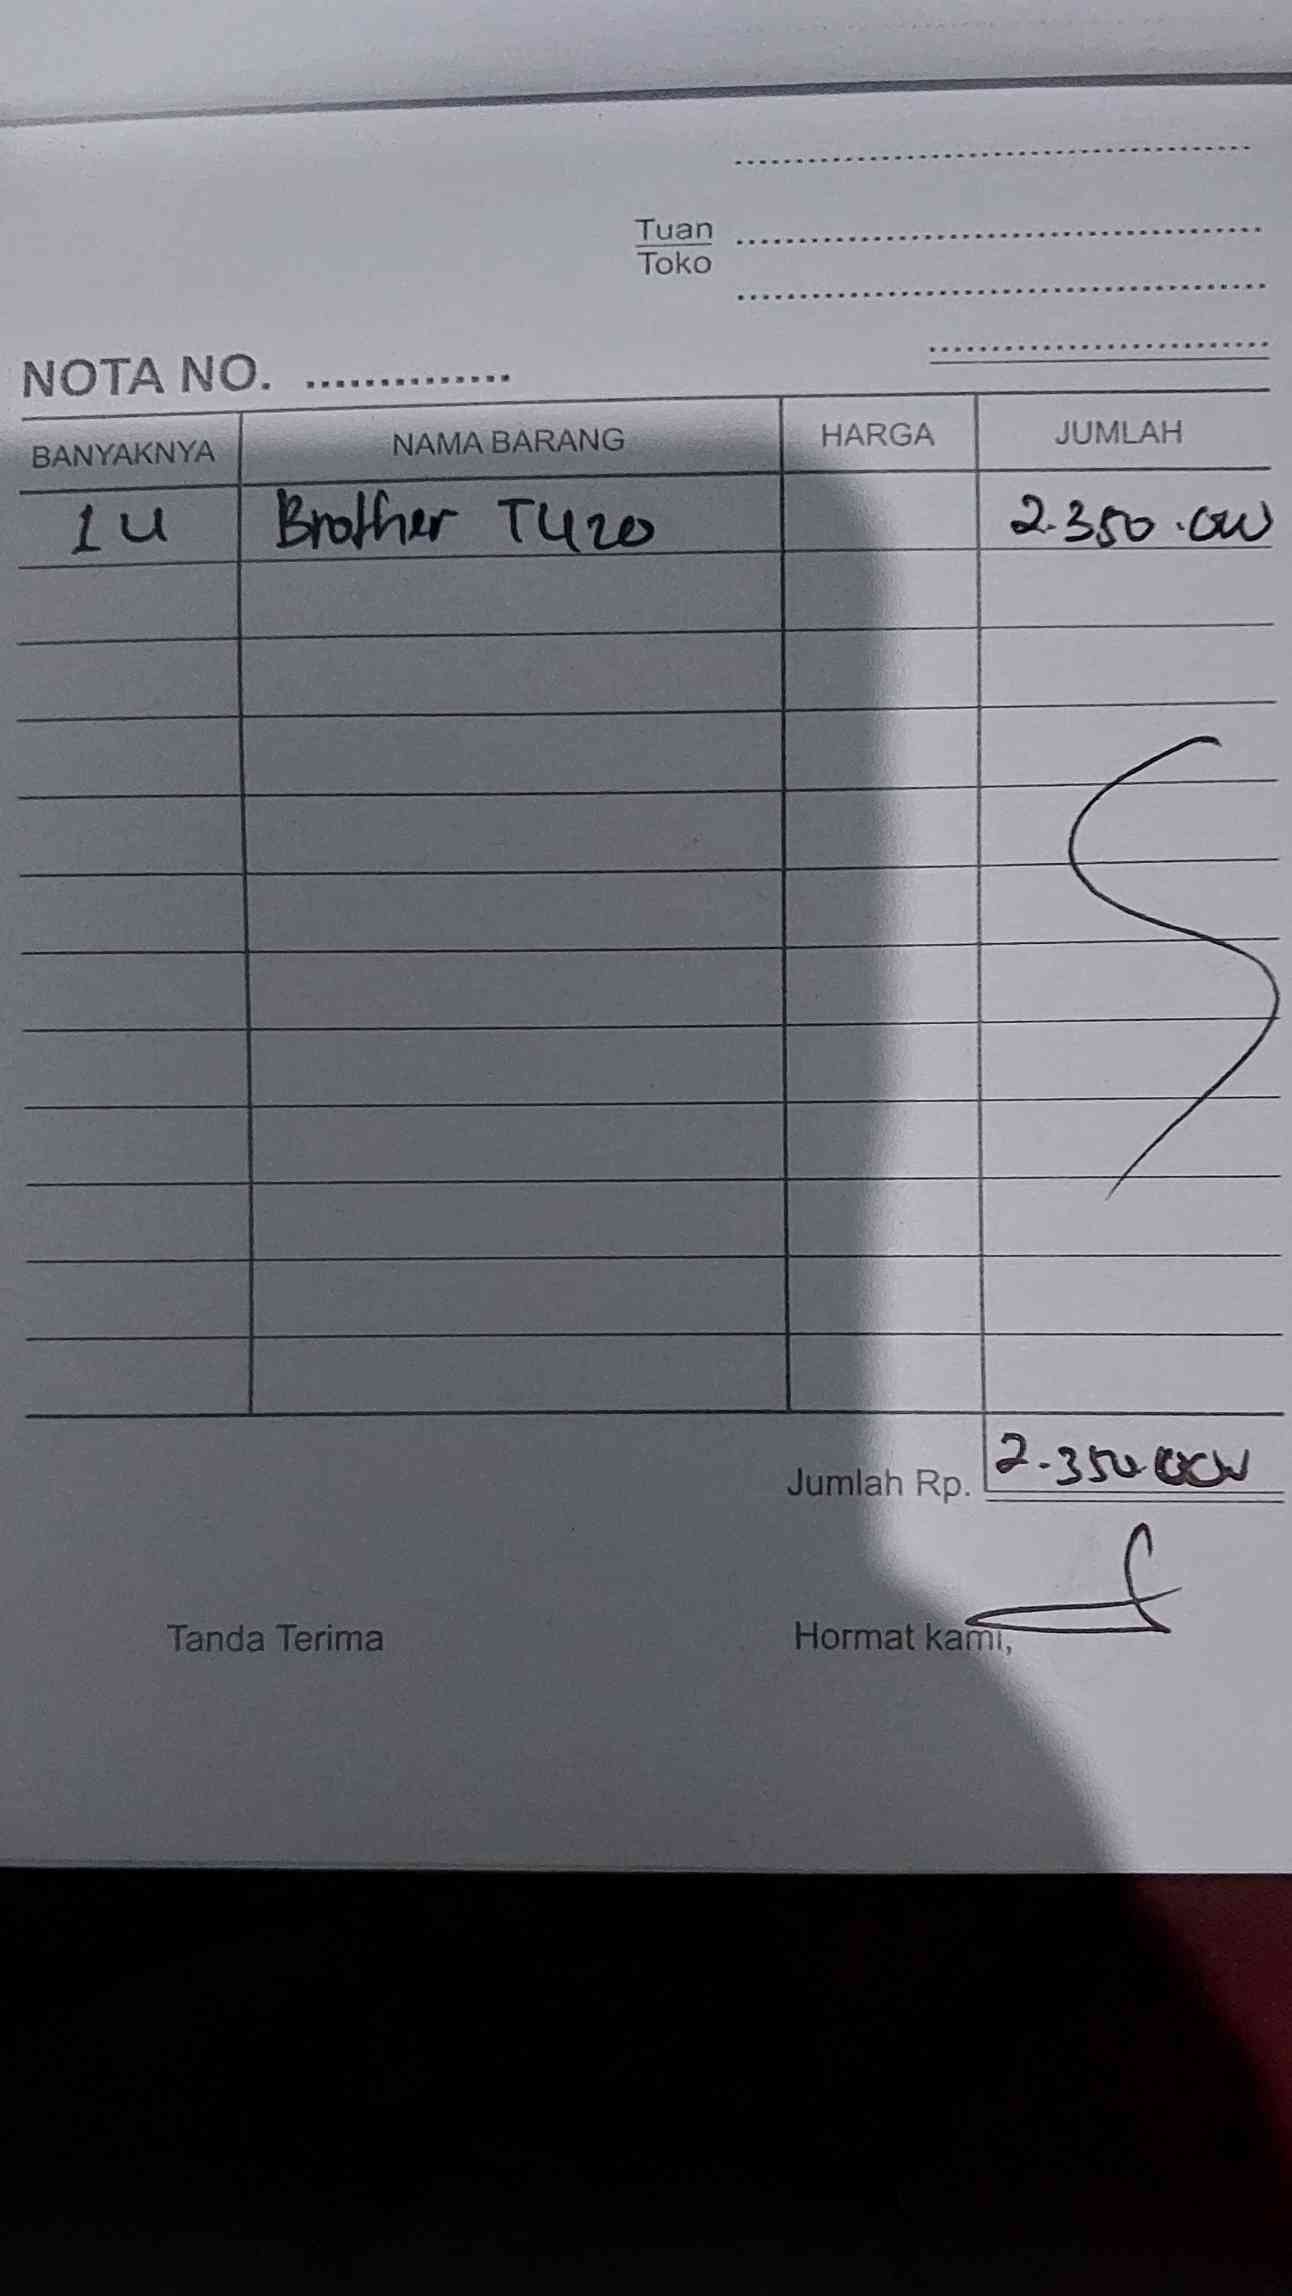 Tuan
Toko
NOTA NO. ..............
BANYAKNYA NAMA BARANG HARGA JUMLAH
1 U Brother T420 2.350.000
Jumlah Rp. 2.350.000
Tanda Terima Hormat kami,